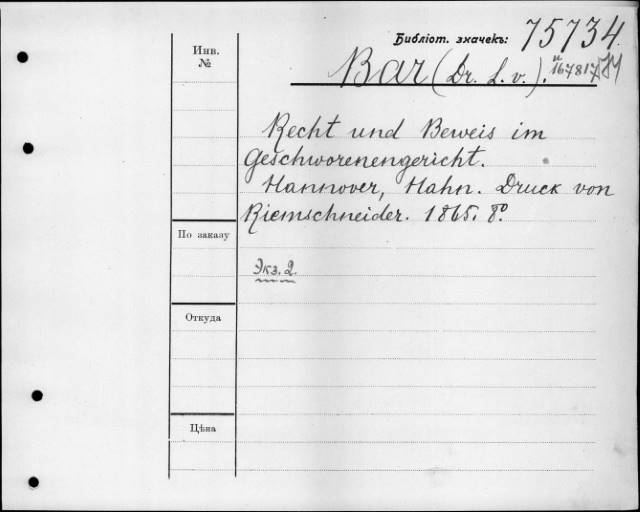 Библіот. значекъ: 75734.
Инв. №
Bar (Dr. L. v.).
Recht und Beweis im
Geschworenengericht.
Hannover, Hahn. Druck von
Riemschneider. 1865. 8º.
По заказу
Экз. 2.
Откуда
Цѣна